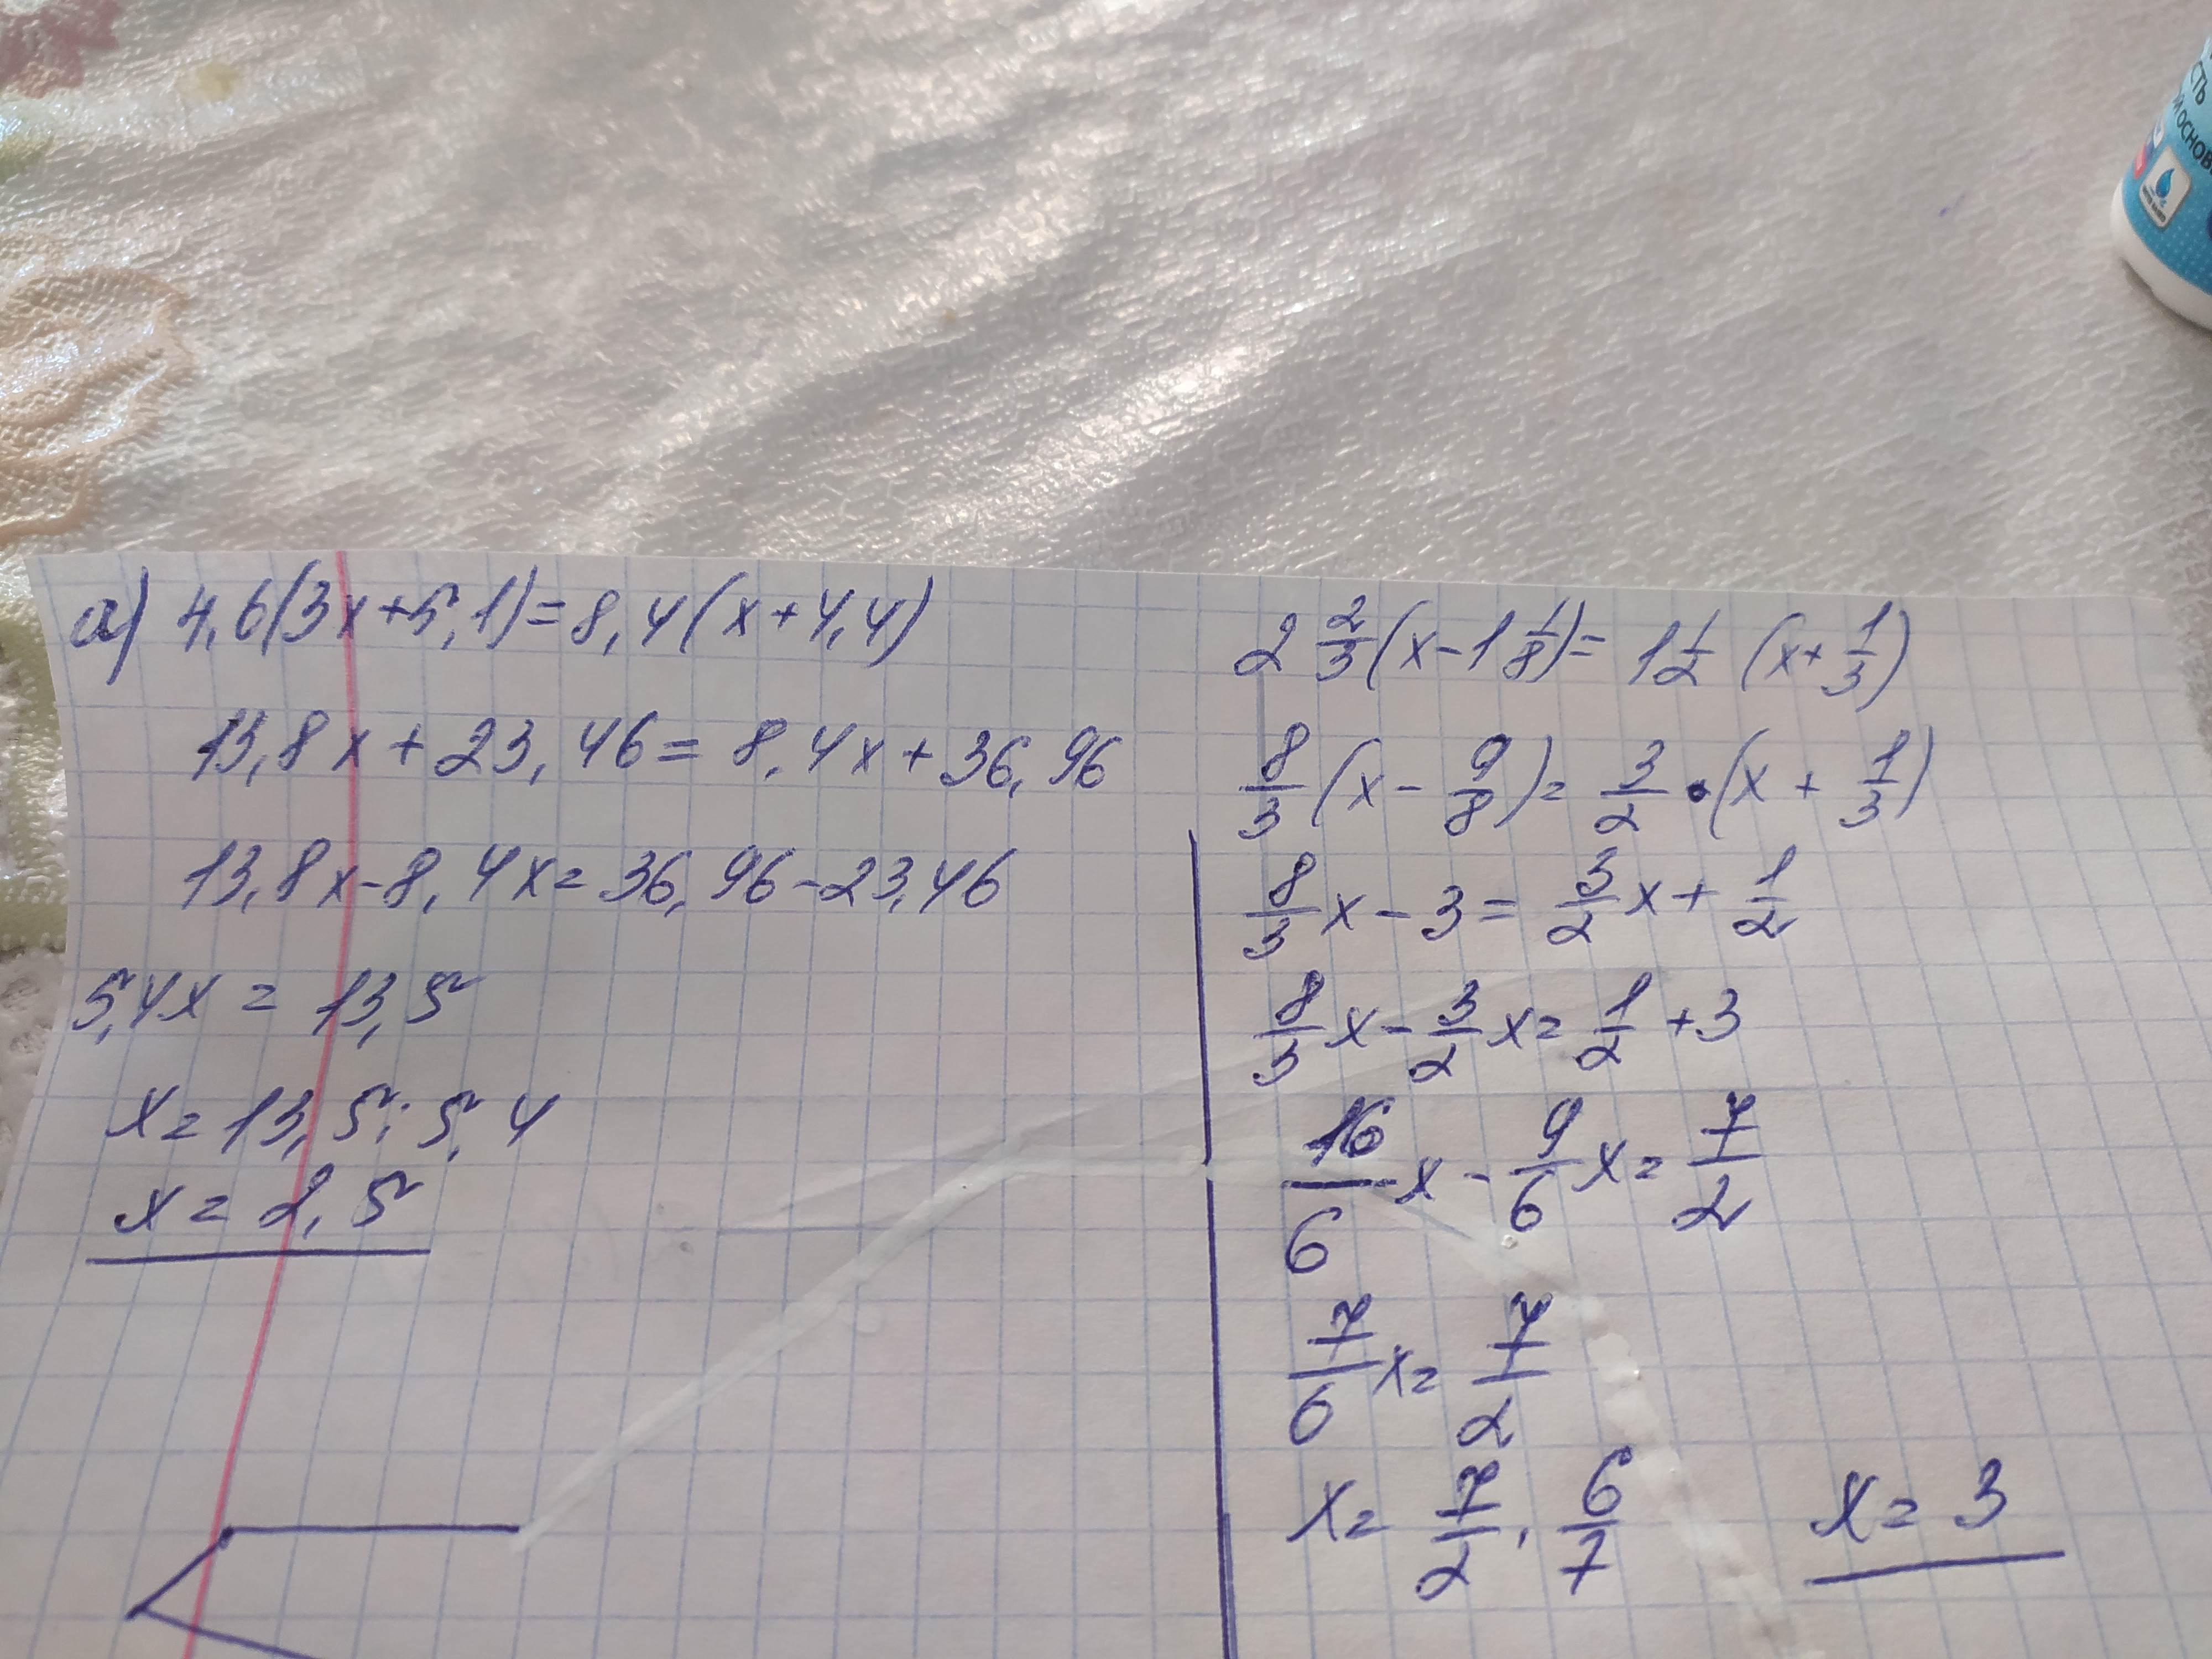 а) 4,6(3x+5,1)=8,4(x+4,4)
13,8x+23,46=8,4x+36,96
13,8x-8,4x=36,96-23,46
5,4x=13,5
x=13,5:5,4
x=2,5
2 2/3(x-1 1/8)=1 1/2(x+1/3)
8/3(x-9/8)=3/2·(x+1/3)
8/3x-3=3/2x+1/2
8/3x-3/2x=1/2+3
16/6x-9/6x=7/2
7/6x=7/2
x=7/2·6/7 x=3